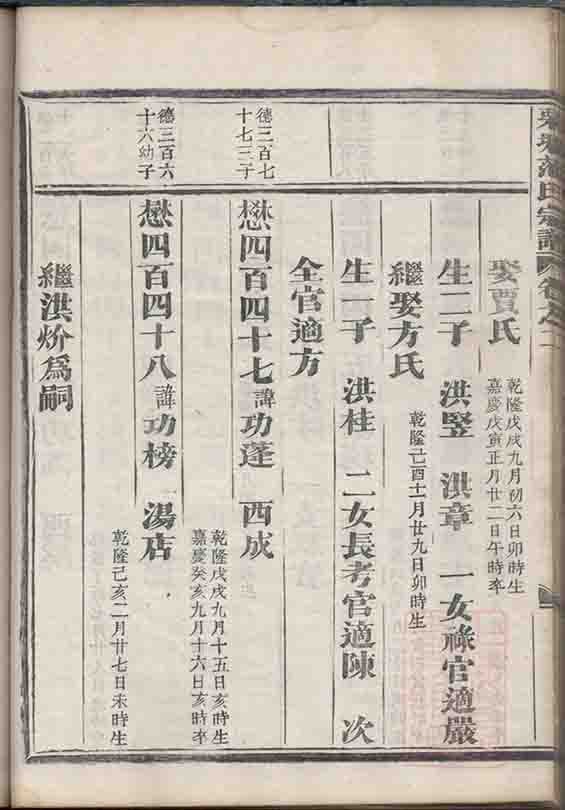 范氏宗譜
卷之
娶賈氏
乾隆戊戌九月初六日卯時生
嘉慶戊寅正月廿二日午時卒
生二子 洪豎 洪章 一女祿官適嚴
繼娶方氏
乾隆己酉十一月廿九日卯時生
生一子 洪桂 二女長考官適陳 次
全官適方
德三百七
十七三子
懋四百四十七諱功蓬 西成
乾隆戊戌九月十五日亥時生
嘉慶癸亥九月十六日亥時卒
德三百六
十六幼子
懋四百四十八諱功榜 湯店
乾隆己亥二月廿七日未時生
繼洪炌爲嗣